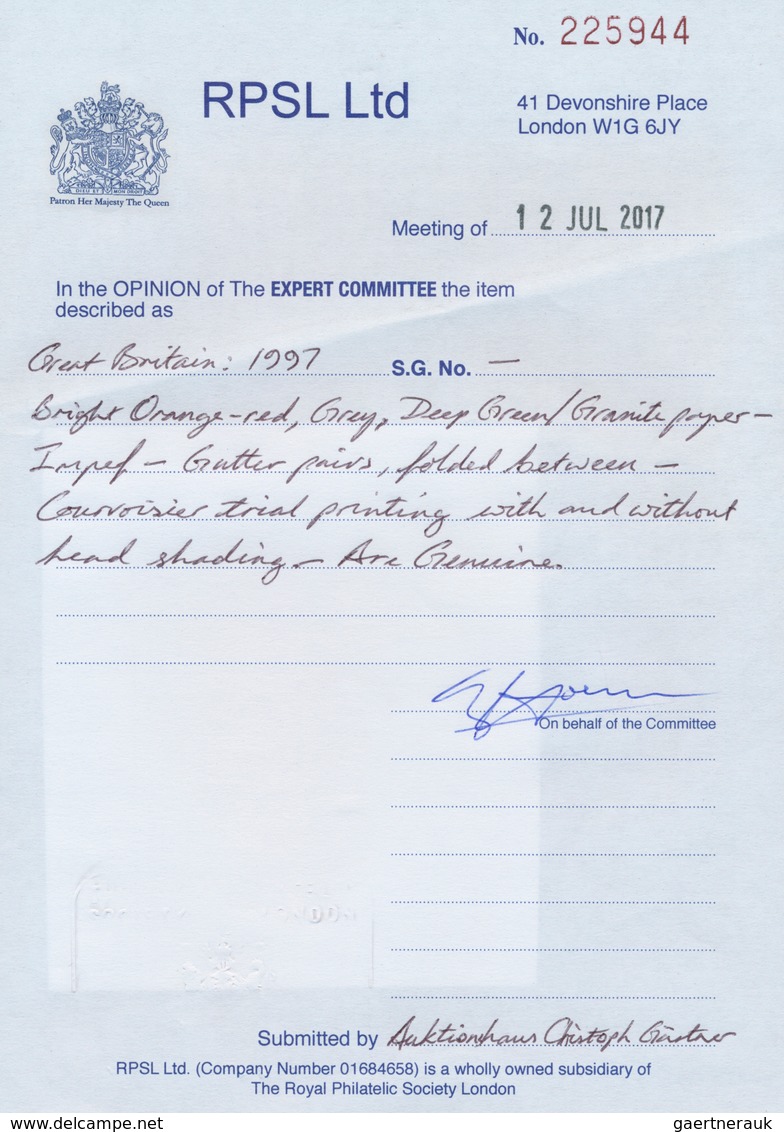 No. 225944
RPSL Ltd
41 Devonshire Place
London W1G 6JY
DIEU ET MON DROIT
Patron Her Majesty The Queen
Meeting of 12 JUL 2017
In the OPINION of The EXPERT COMMITTEE the item
described as
Great Britain: 1997 S.G. No. —
Bright Orange-red, Grey, Deep Green/Granite paper -
Impef - Gutter pairs, folded between -
Courvoisier trial printing with and without
head shading - Are Genuine.
On behalf of the Committee
Submitted by Auktionshaus Christoph Gärtner
RPSL Ltd. (Company Number 01684658) is a wholly owned subsidiary of
The Royal Philatelic Society London
www.delcampe.net
gaertnerauk